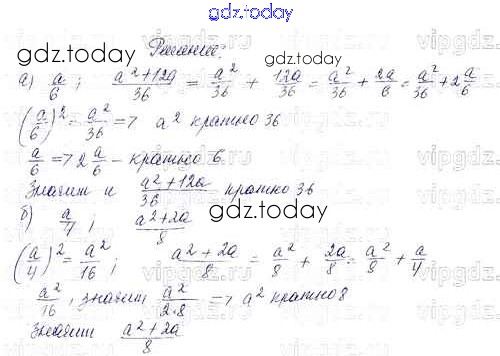 gdz.today
gdz.today Решение: gdz.today
а) a/6 ; a²+12a/36 = a²/36 + 12a/36 = a²/36 + 2a/6 = a²/36 + 2 a/6
(a/6)² = a²/36 => a² кратно 36
a/6 => 2 a/6 – кратно 6.
Значит и a²+12a/36 кратно 36
gdz.today
б) a/4 ; a²+2a/8
(a/4)² = a²/16 ; a²+2a/8 = a²/8 + 2a/8 = a²/8 + a/4
a²/16 , значит a²/2·8 => a² кратно 8
Значит a²+2a/8